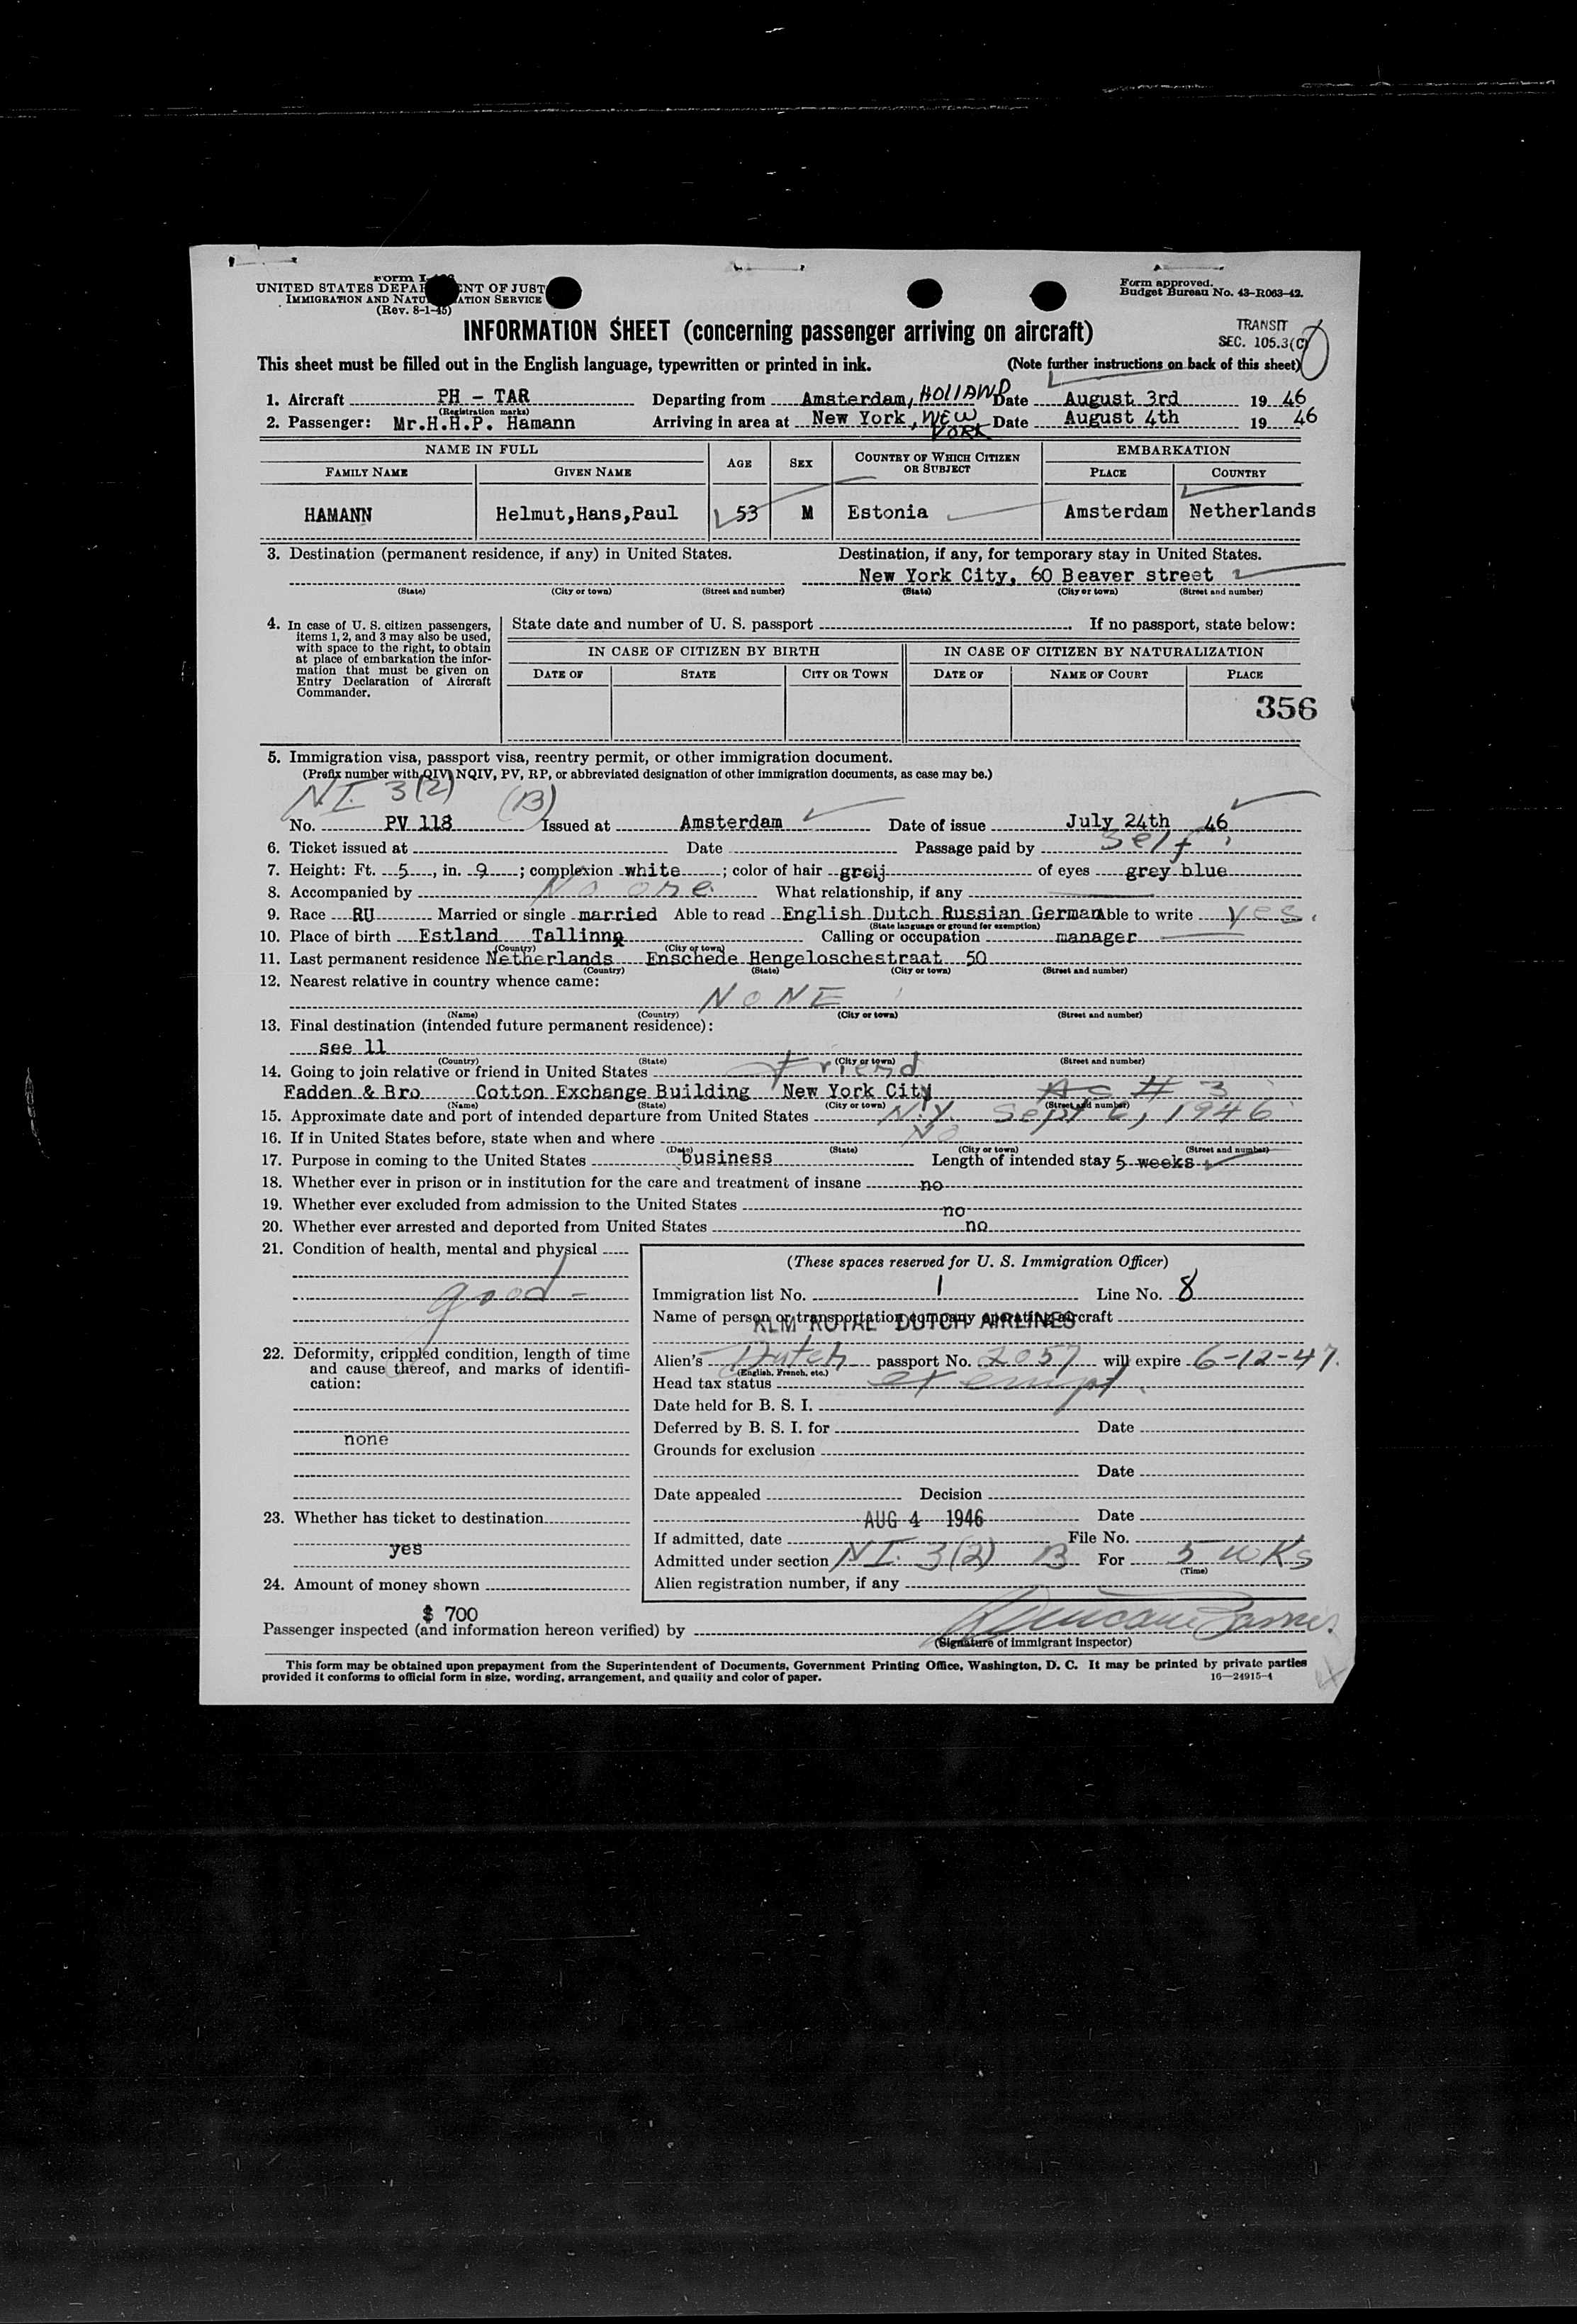 Form I-
UNITED STATES DEPA NT OF JUST
IMMIGRATION AND NATU ATION SERVICE
(Rev. 8-1-45)
Form approved.
Budget Bureau No. 43-R063-42.
INFORMATION SHEET (concerning passenger arriving on aircraft)
TRANSIT
SEC. 105.3(C)
This sheet must be filled out in the English language, typewritten or printed in ink. (Note further instructions on back of this sheet)
1. Aircraft PH - TAR Departing from Amsterdam, HOLLAND Date August 3rd 19 46
(Registration marks)
2. Passenger: Mr.H.H.P. Hamann Arriving in area at New York, NEW YORK Date August 4th 19 46
NAME IN FULL AGE SEX COUNTRY OF WHICH CITIZEN OR SUBJECT EMBARKATION
FAMILY NAME GIVEN NAME PLACE COUNTRY
HAMANN Helmut,Hans,Paul 53 M Estonia Amsterdam Netherlands
3. Destination (permanent residence, if any) in United States. Destination, if any, for temporary stay in United States.
New York City, 60 Beaver street
(State) (City or town) (Street and number) (State) (City or town) (Street and number)
4. In case of U. S. citizen passengers, items 1, 2, and 3 may also be used, with space to the right, to obtain at place of embarkation the information that must be given on Entry Declaration of Aircraft Commander.
State date and number of U. S. passport If no passport, state below:
IN CASE OF CITIZEN BY BIRTH IN CASE OF CITIZEN BY NATURALIZATION
DATE OF STATE CITY OR TOWN DATE OF NAME OF COURT PLACE
356
5. Immigration visa, passport visa, reentry permit, or other immigration document.
(Prefix number with QIV, NQIV, PV, RP, or abbreviated designation of other immigration documents, as case may be.)
N.I. 3(2) (B)
No. PV 118 Issued at Amsterdam Date of issue July 24th 46
6. Ticket issued at Date Passage paid by Self
7. Height: Ft. 5, in. 9; complexion white; color of hair greij of eyes grey blue
8. Accompanied by No one. What relationship, if any
9. Race RU Married or single married Able to read English Dutch Russian German Able to write yes.
(State language or ground for exemption)
10. Place of birth Estland Tallinn Calling or occupation manager
(Country) (City or town)
11. Last permanent residence Netherlands Enschede Hengeloschestraat 50
(Country) (State) (City or town) (Street and number)
12. Nearest relative in country whence came:
NONE
(Name) (Country) (City or town) (Street and number)
13. Final destination (intended future permanent residence):
see 11
(Country) (State) (City or town) (Street and number)
14. Going to join relative or friend in United States Friend
Fadden & Bro Cotton Exchange Building New York City As # 3
(Name) (State) (City or town) (Street and number)
15. Approximate date and port of intended departure from United States N.Y. Sept 6, 1946
16. If in United States before, state when and where No
(Date) (State) (City or town) (Street and number)
17. Purpose in coming to the United States business Length of intended stay 5 weeks
18. Whether ever in prison or in institution for the care and treatment of insane no
19. Whether ever excluded from admission to the United States no
20. Whether ever arrested and deported from United States no
21. Condition of health, mental and physical
good -
22. Deformity, crippled condition, length of time and cause thereof, and marks of identification:
none
23. Whether has ticket to destination
yes
24. Amount of money shown
$ 700
(These spaces reserved for U. S. Immigration Officer)
Immigration list No. 1 Line No. 8
Name of person or transportation company operating aircraft
KLM ROYAL DUTCH AIRLINES
Alien's Dutch passport No. 2057 will expire 6-12-47.
(English, French, etc.)
Head tax status exempt.
Date held for B. S. I.
Deferred by B. S. I. for Date
Grounds for exclusion
Date
Date appealed Decision
AUG 4 1946 Date
If admitted, date File No.
Admitted under section N.I. 3(2) B For 5 wks
(Time)
Alien registration number, if any
Passenger inspected (and information hereon verified) by
(Signature of immigrant inspector)
This form may be obtained upon prepayment from the Superintendent of Documents, Government Printing Office, Washington, D. C. It may be printed by private parties
provided it conforms to official form in size, wording, arrangement, and quality and color of paper.
16—24915-4